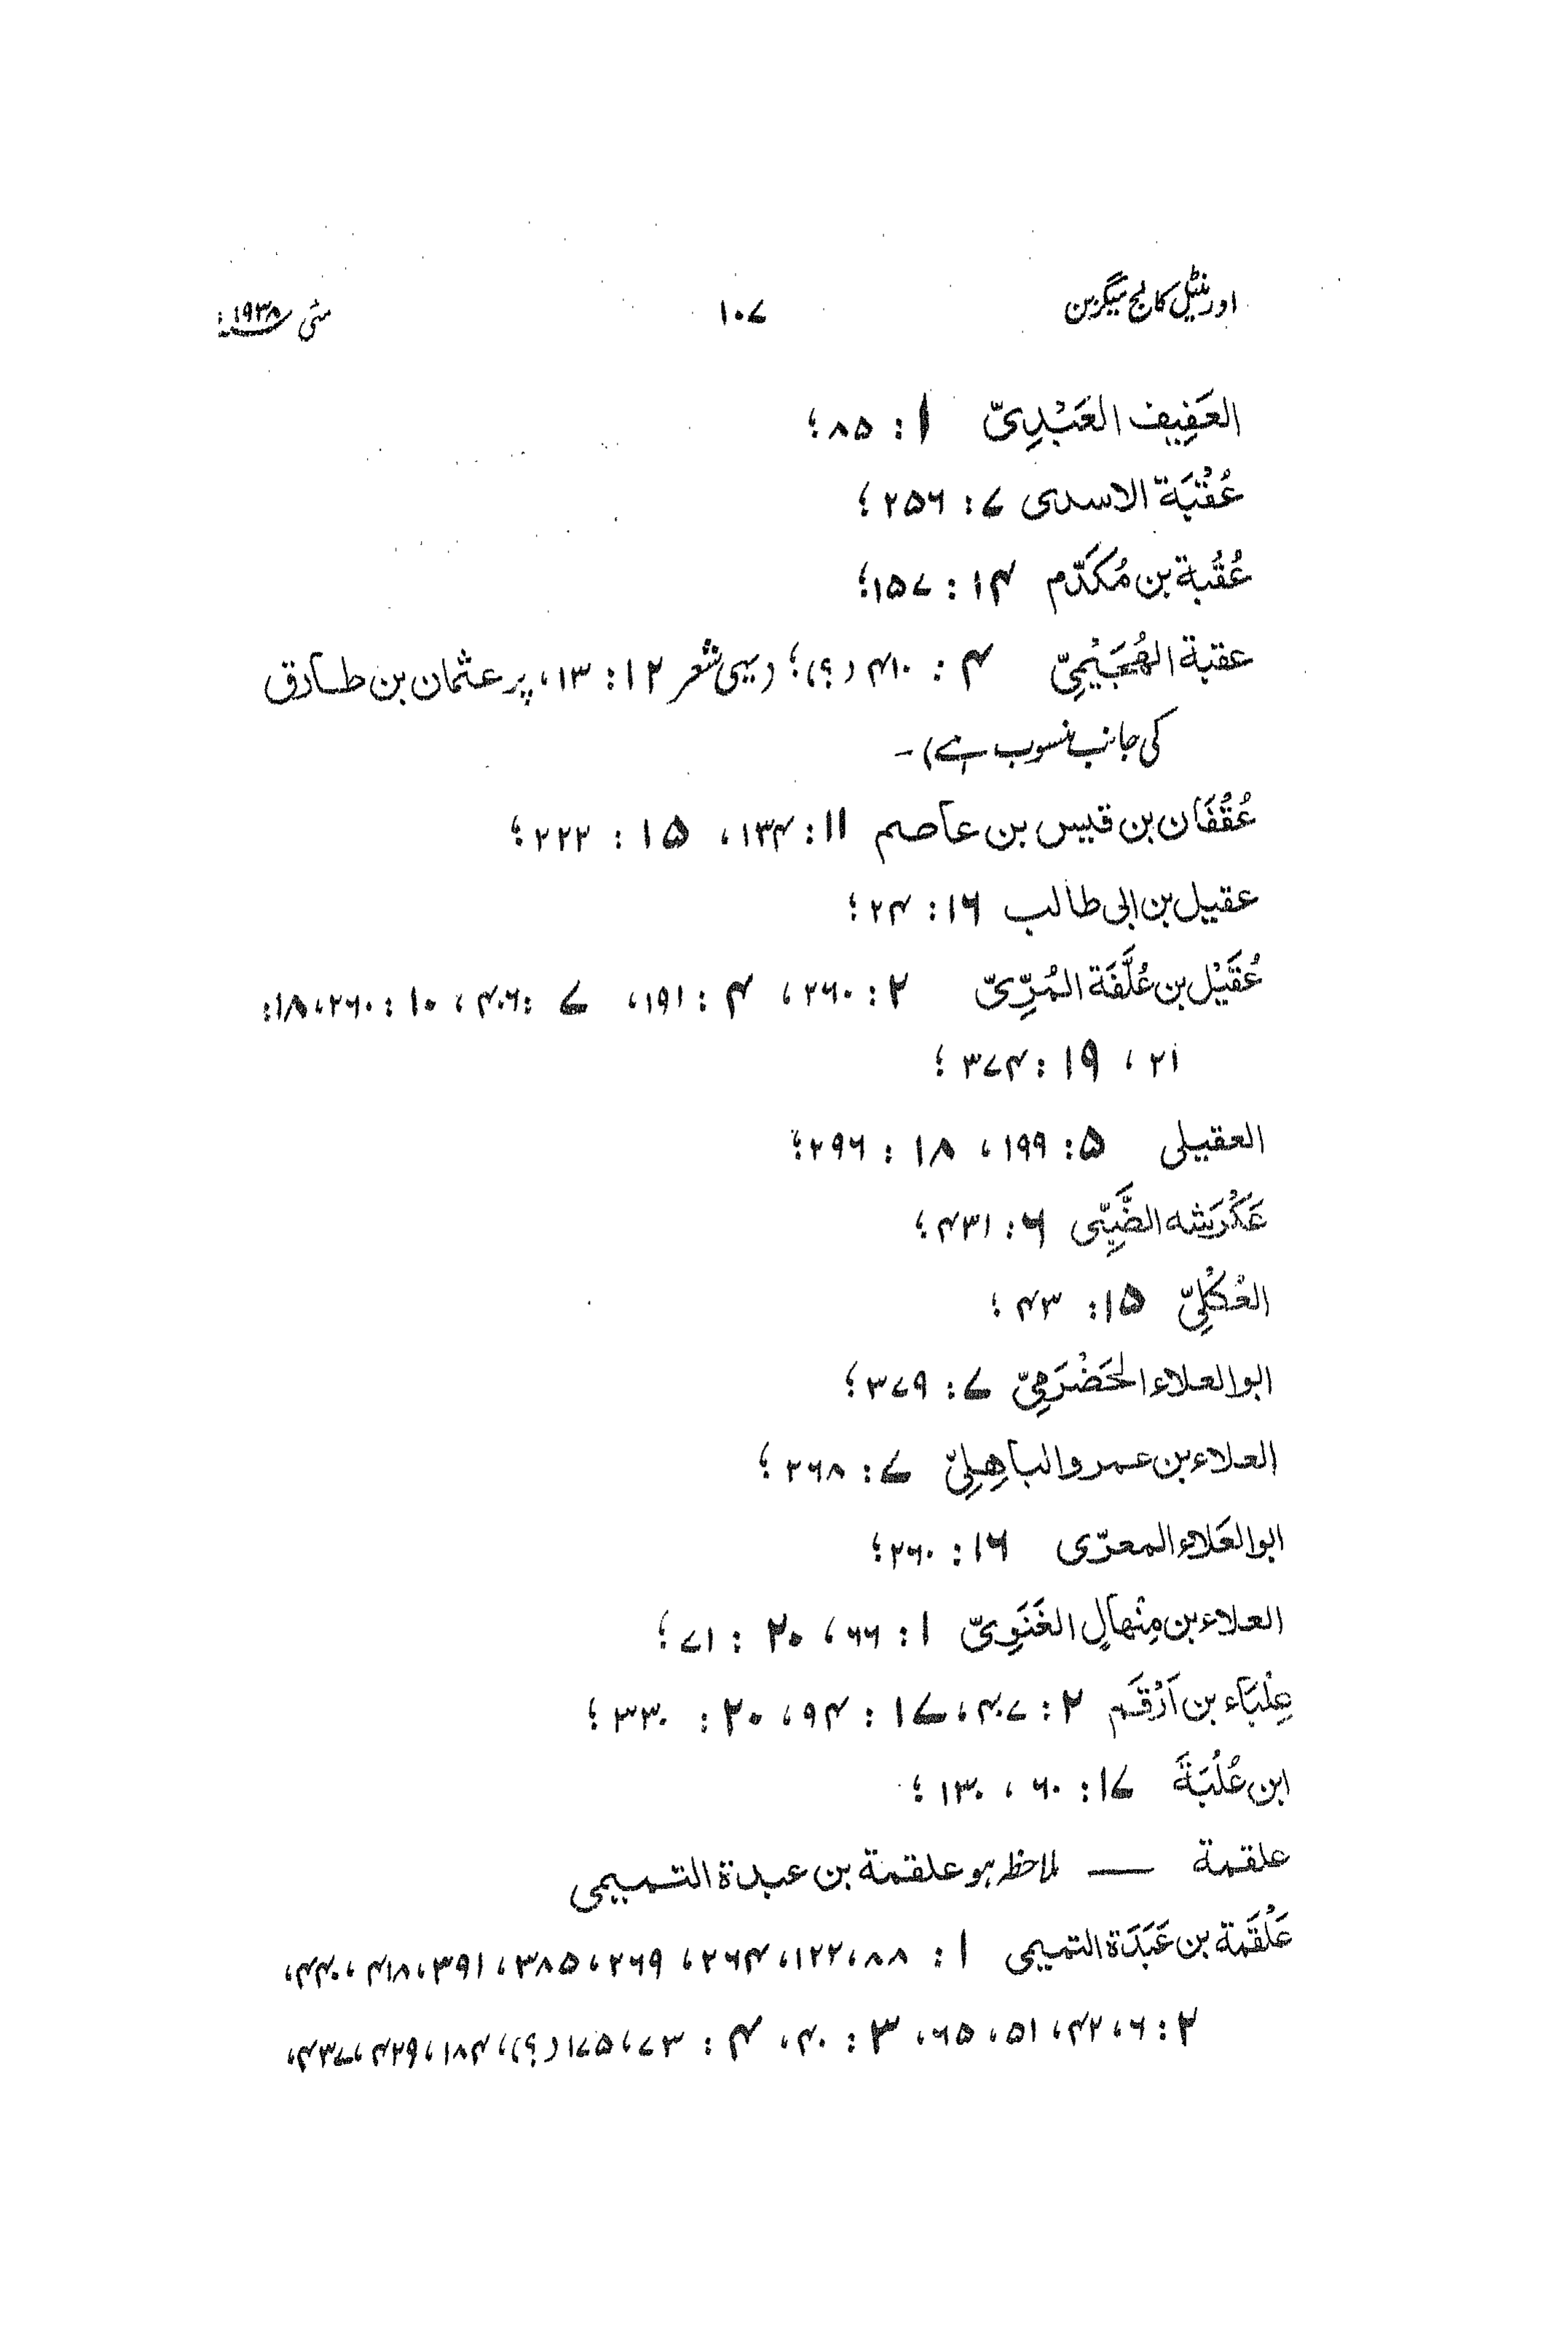 اورینٹیل کالج میگزین ۱۰۷ مئی ۱۹۳۸ء
العَفِیف العَبْدِیّ ۱ : ۸۵؛
عُقْبَة الاسدی ۷ : ۲۵۶؛
عُقْبة بن مُكَدَّم ۱۴ : ۱۵۷؛
عقبة الهُجَيْمِيّ ۴ : ۴۱۰ (؟)؛ (یہی شعر ۱۲ : ۱۳، پر عثمان بن طارق
کی جانب منسوب ہے)۔
عُقْفَان بن قیس بن عاصم ۱۱ : ۱۳۴، ۱۵ : ۲۲۲؛
عقیل بن ابی طالب ۱۶ : ۲۴؛
عُقَيْل بن عُلَّفَة المُرِّيّ ۲ : ۲۶۰، ۴ : ۱۹۱، ۷ : ۴۰۶، ۱۰ : ۲۶۰، ۱۸ :
۲۱، ۱۹ : ۳۷۴؛
العقیلی ۵ : ۱۹۹، ۱۸ : ۲۹۶؛
عَكْرَشه الضَّبِّی ۶ : ۴۳۱؛
العُكْلِيّ ۱۵ : ۴۳؛
ابو العلاء الحَضْرَمِيّ ۷ : ۳۷۹؛
العلاء بن عمرو الباهِلِيّ ۷ : ۲۶۸؛
ابو العَلاء المعرّی ۱۶ : ۲۶۰؛
العلاء بن مِنْهالٍ الغَنَوِيّ ۱ : ۶۶، ۲۰ : ۷۱؛
عِلْبَاء بن اَرْقَم ۲ : ۴۰۷، ۱۷ : ۹۴، ۲۰ : ۳۳۰؛
ابن عُلْبَةَ ۱۷ : ۶۰، ۱۳۰؛
علقمة — ملاحظہ ہو علقمة بن عبدة التمیمی
عَلْقَمة بن عَبَدَة التمیمی ۱ : ۸۸، ۱۲۲، ۲۶۴، ۲۶۹، ۳۸۵، ۳۹۱، ۴۱۸، ۴۴۰،
۲ : ۶، ۴۲، ۵۱، ۶۵، ۳ : ۴۰، ۴ : ۷۳، ۱۷۵ (؟)، ۴۱۸، ۴۲۹، ۴۳۷،